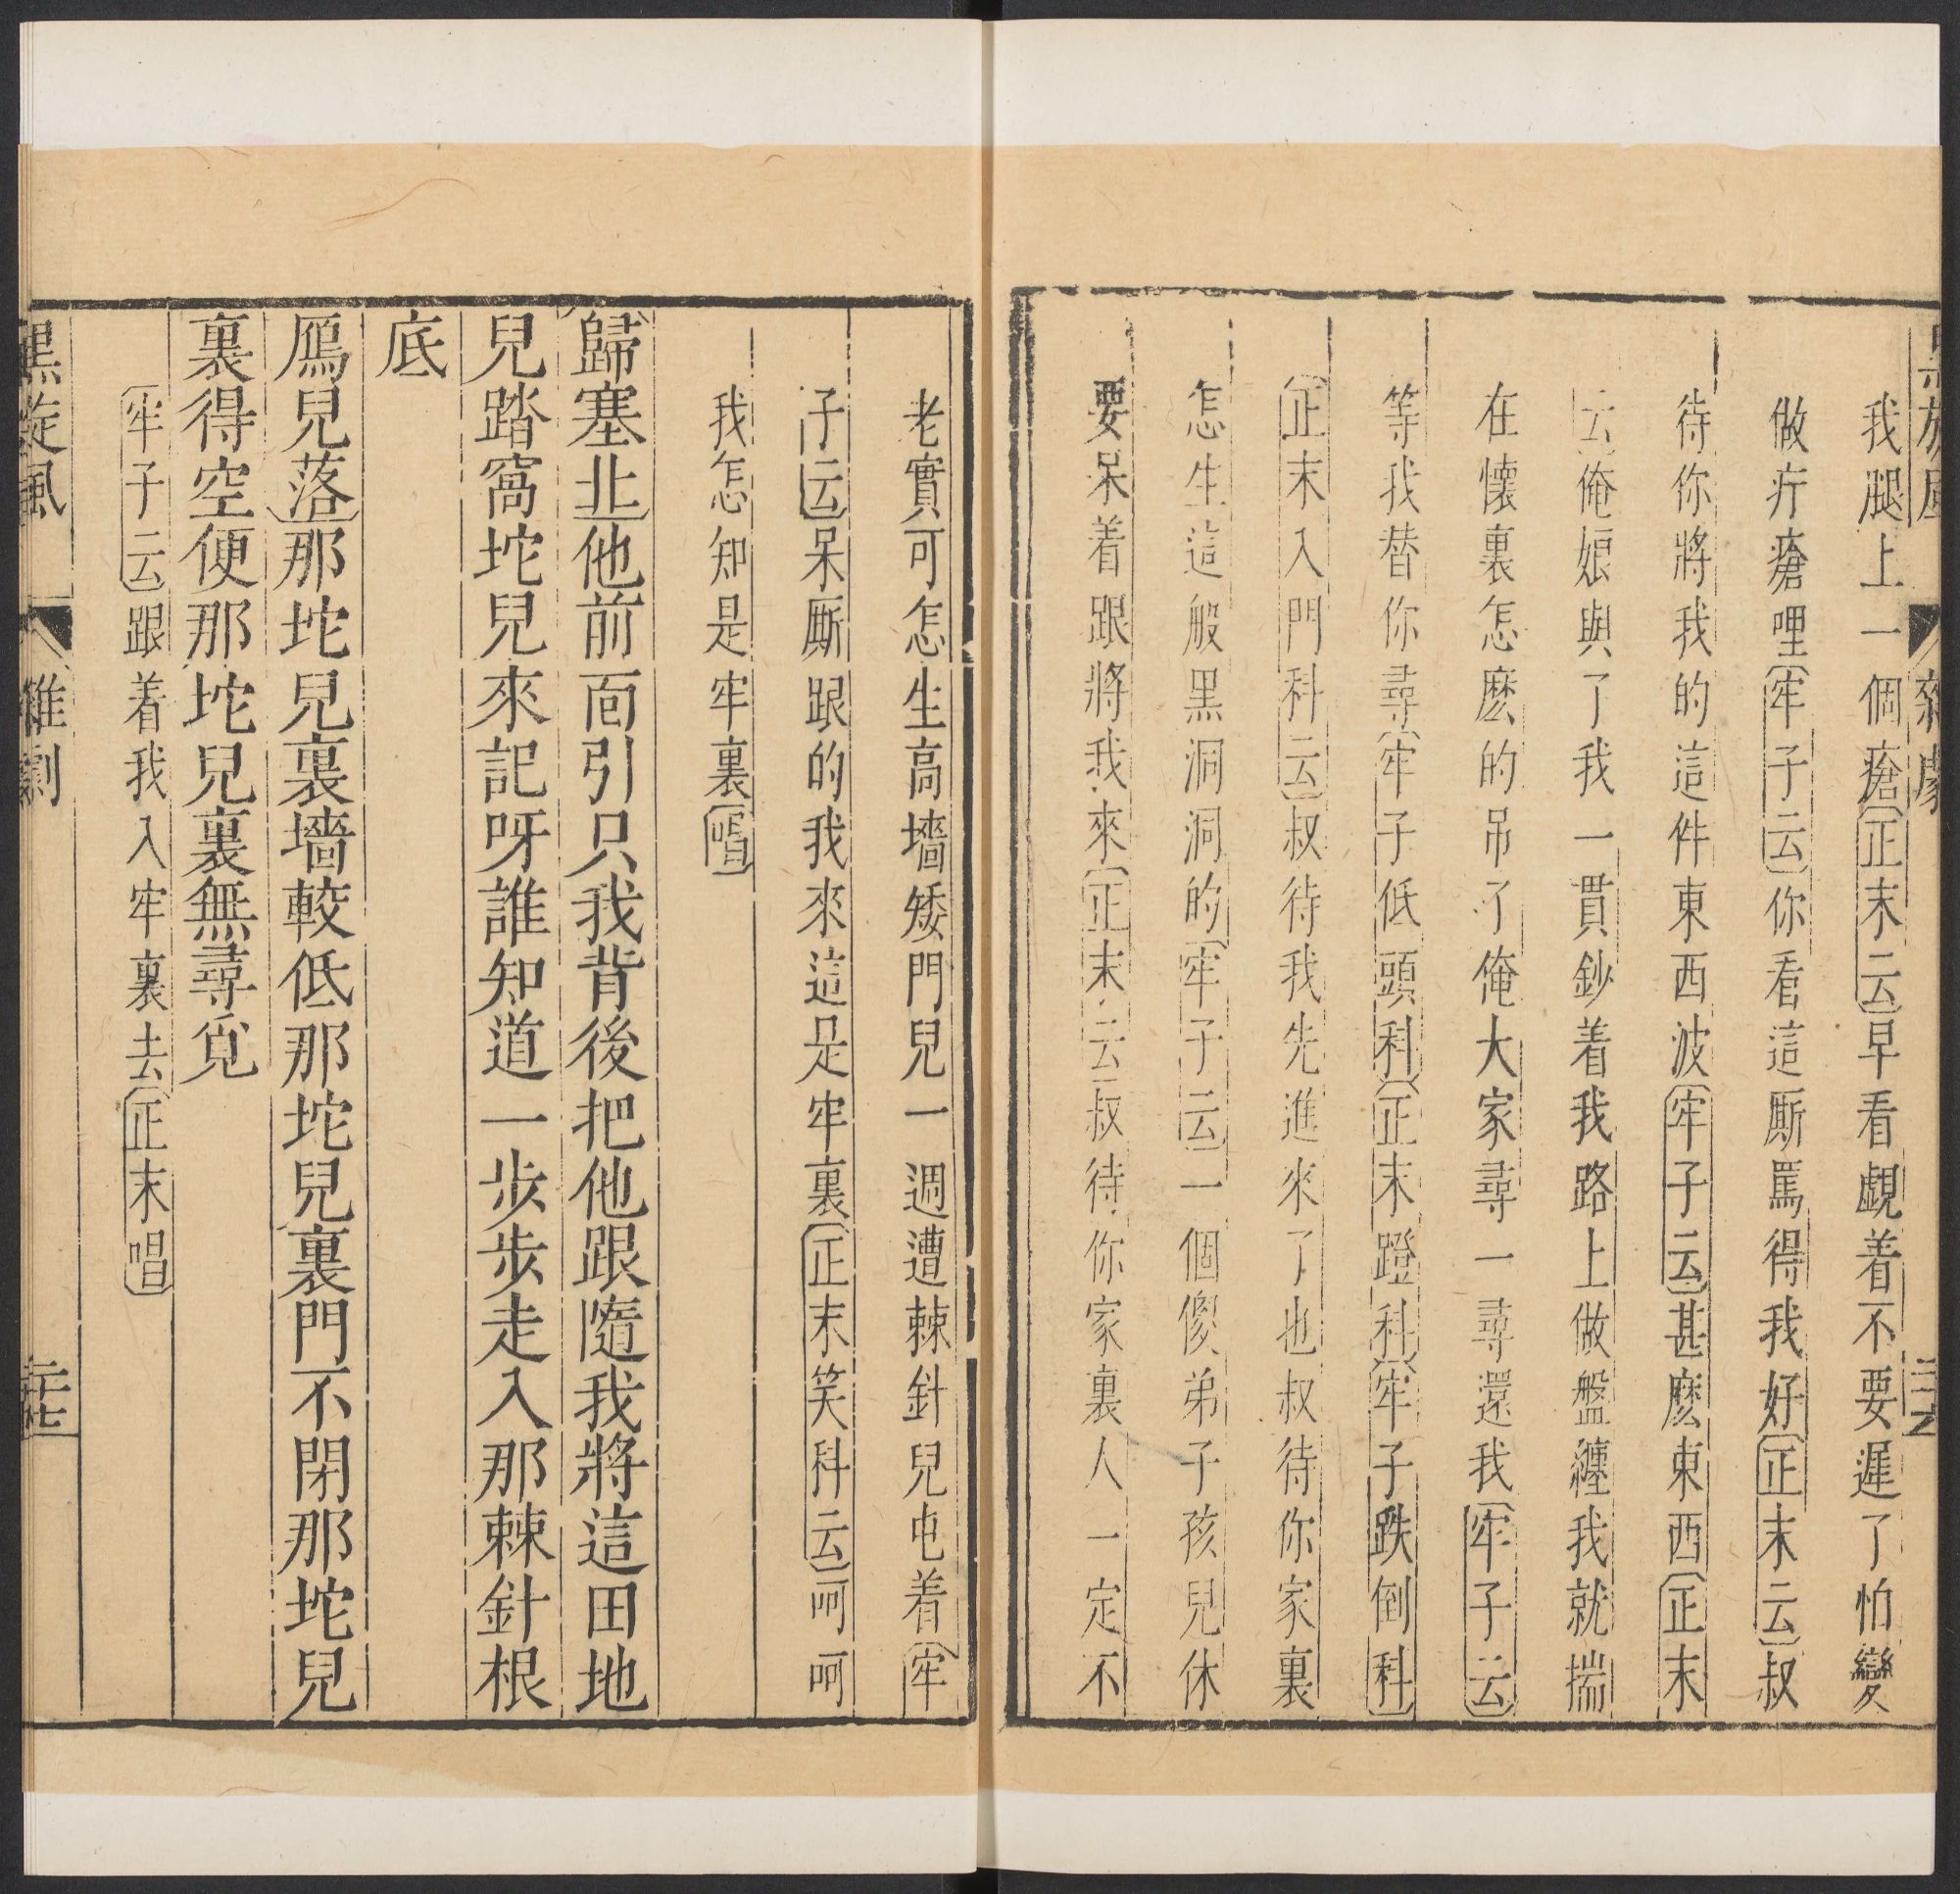 我腿上一個瘡正末云早看覷着不要遲了怕變
做疔瘡哩牢子云你看這厮罵得我好正末云叔
待你將我的這件東西波牢子云甚麽東西正末
云俺娘與了我一貫鈔着我路上做盤纏我就揣
在懷裏怎麽的吊了俺大家尋一尋還我牢子云
等我替你尋牢子低頭科正末蹬科牢子跌倒科
正末入門科云叔待我先進來了也叔待你家裏
怎生這般黑洞洞的牢子云一個傻弟子孩兒休
要呆着跟將我來正末云叔待你家裏人一定不
老實可怎生高墻矮門兒一週遭棘針兒屯着牢
子云呆厮跟的我來這是牢裏正末笑科云呵呵
我怎知是牢裏唱
歸塞北他前面引只我背後把他跟隨我將這田地
兒踏窩坨兒來記呀誰知道一步步走入那棘針根
底
鴈兒落那坨兒裏墻較低那坨兒裏門不閉那坨兒
裏得空便那坨兒裏無尋覓
牢子云跟着我入牢裏去正末唱
黑旋風 雜劇 二十七